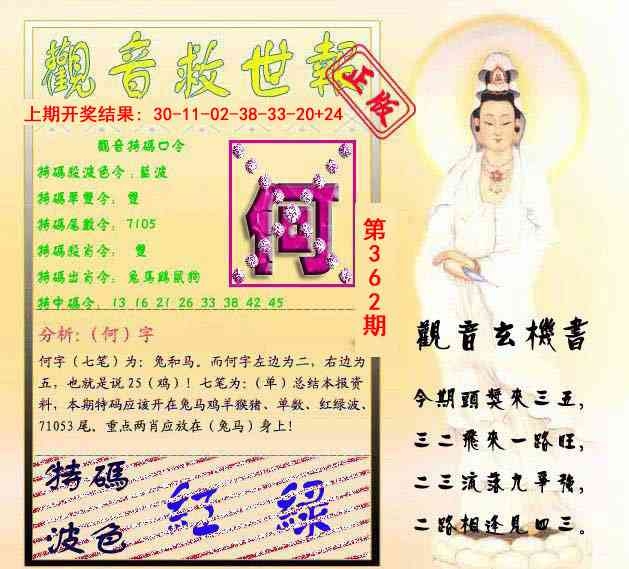 觀音救世報
正版
上期开奖结果：30-11-02-38-33-20+24
觀音特碼口令
特碼段波色令：藍波
特碼單雙令： 雙
特碼尾數令： 7105
特碼段肖令： 雙
特碼出肖令： 兔馬鷄鼠狗
特中碼令： 13 16 21 26 33 38 42 45
何
第362期
分析:（何）字
何字（七笔）为：兔和马。而何字左边为二，右边为
五，也就是说25（鸡）！七笔为:（单）总结本报资
料，本期特码应该开在兔马鸡羊猴猪、单数、红绿波、
71053尾。重点两肖应放在（兔马）身上！
特碼
波色
紅 綠
觀音玄機書
今期頭獎來三五，
三二飛來一路旺，
二三流落九爭強，
二路相逢見四三。